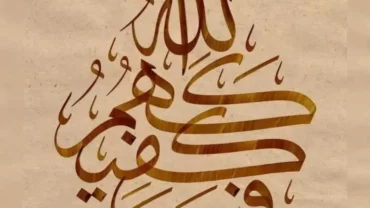 فسيكفيكهم الله